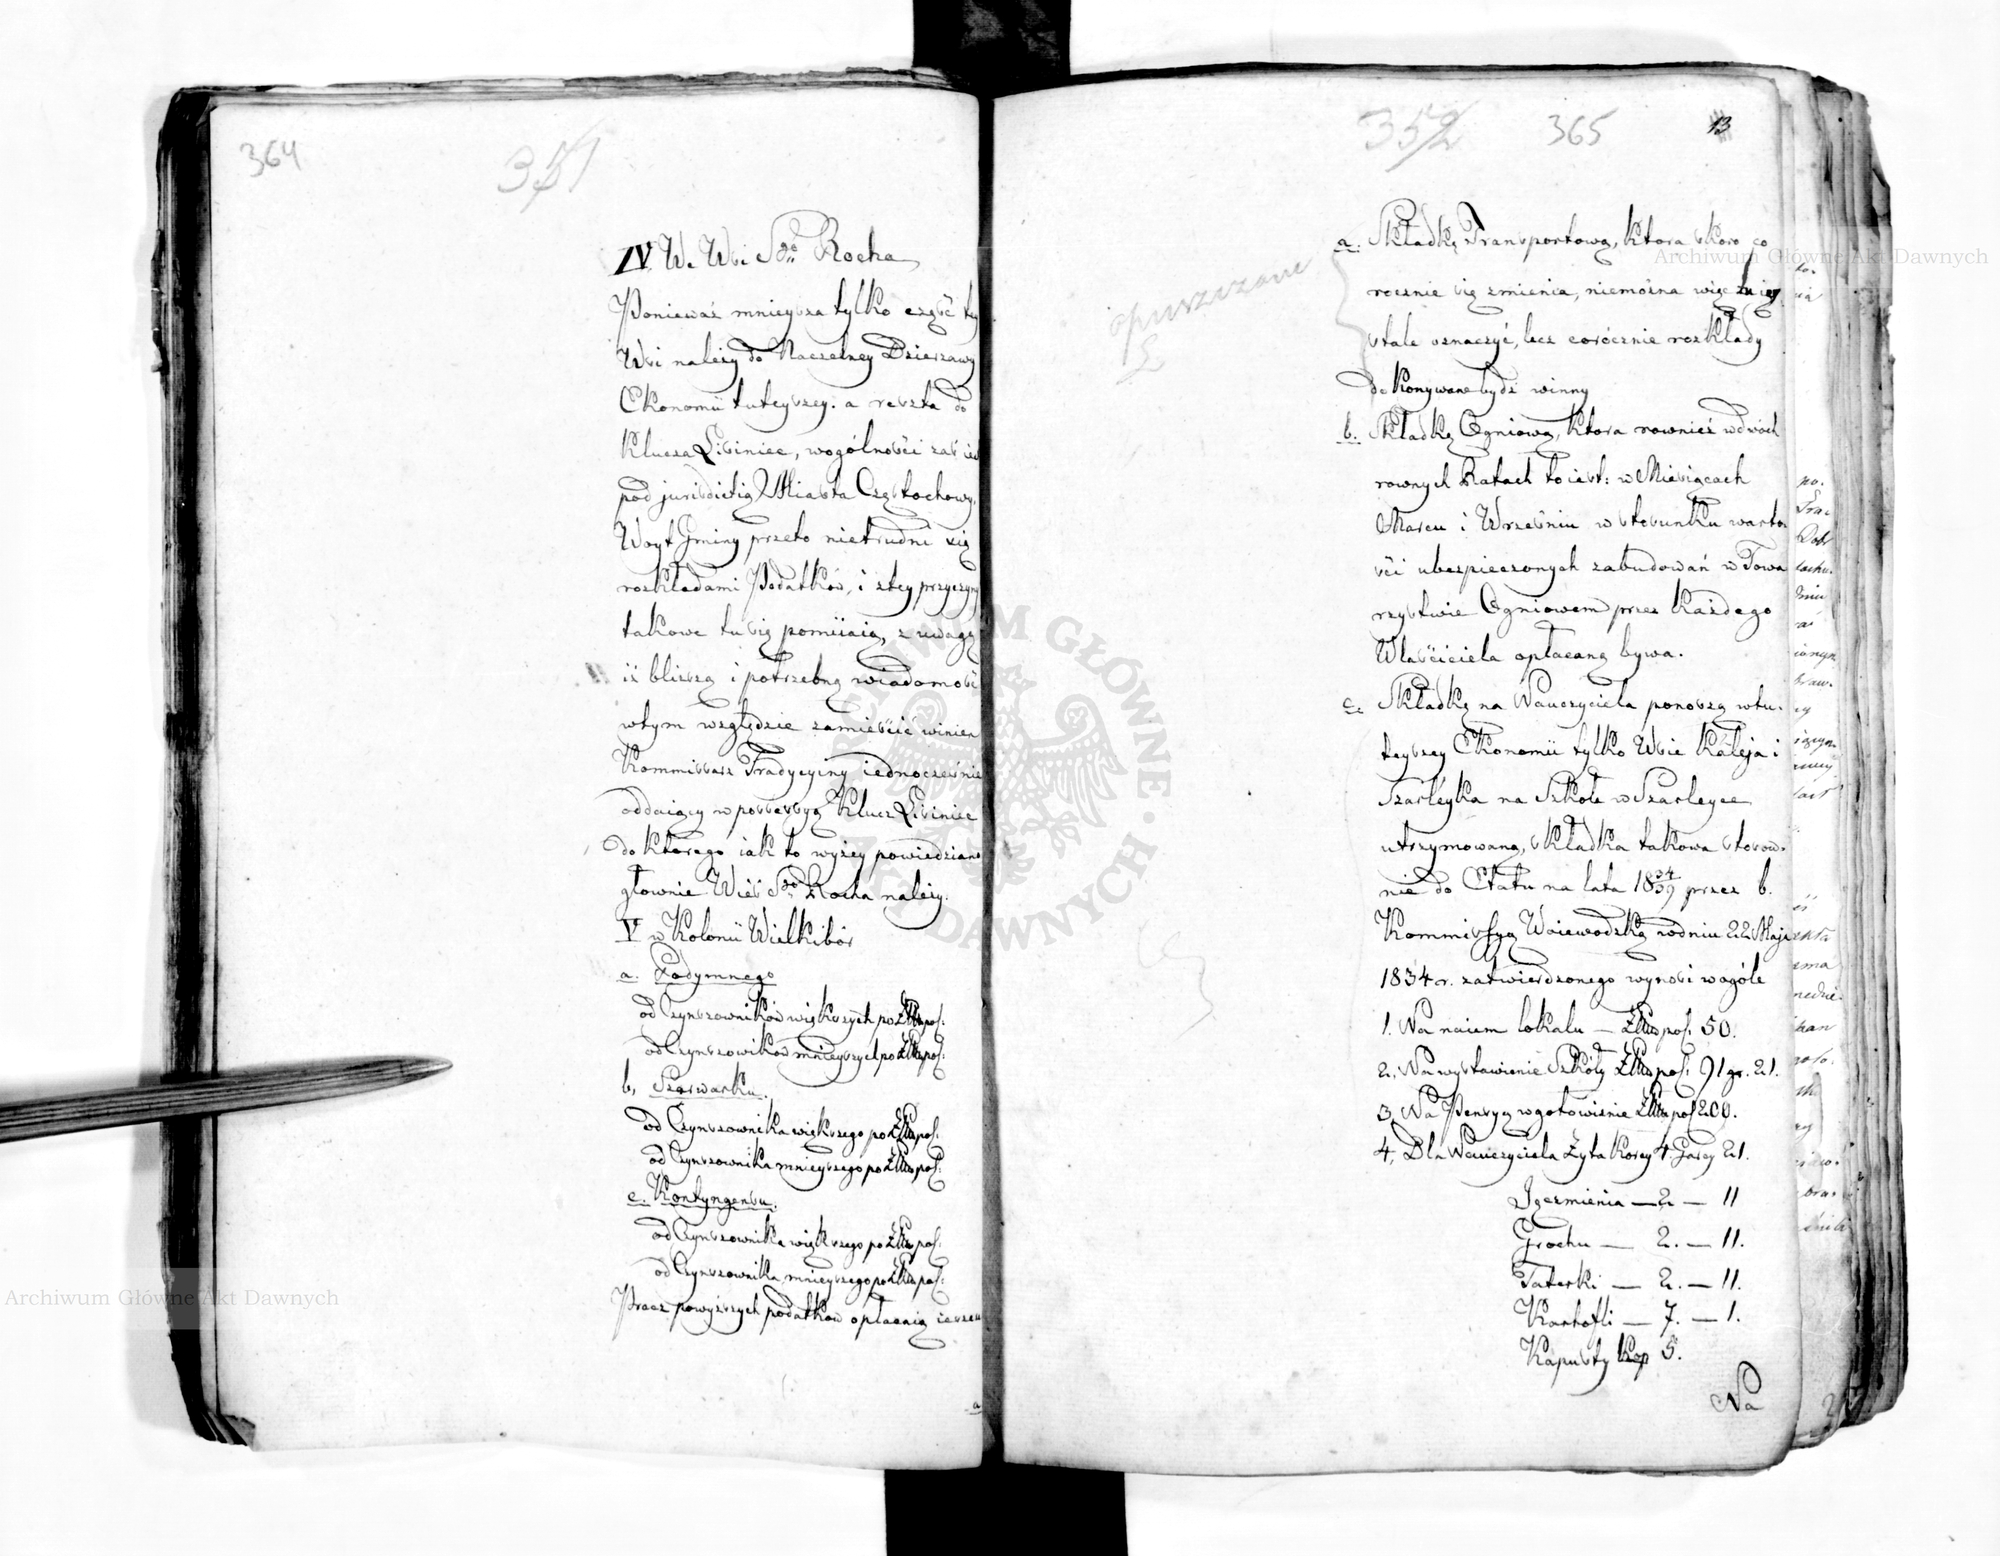 364
351
IV. W. Wsi Sgo Rocha
Ponieważ mnieysza tylko część tey
Wsi należy do Naczelney Dzierzawy
Ekonomii tuteyszey. a reszta do
Klucza Lisiniec, wogólności zaś iest
pod jurisdictią Miasta Częstochowy,
Woyt Gminy przeto nietrudni się
rozkładami Podatków, i ztey przyczyny
takowe tu się pomiiaią, z uwagi
iż bliższą i potrzebną wiadomość
wtym względzie zamieścić winien
Kommissarz Tradycyiny iednocześnie
oddaiący w possessyą Klucz Lisiniec
do którego iak to wyżey powiedziano
głownie Wieś Sgo Rocha należy.
V w Kolonii Wielkibór
a. Podymnego
od Czynszowników większych po Złtp pol:
od Czynszowików mnieyszych po Złtp pol:
b, Szarwarku.
od Czynszownika większego po Złtp pol:
od Czynszownika mnieyszego po Złtp pol:
c. Kontyngensu.
od Czynszownika większego po Złtp pol:
od Czynszownika mnieyszego po Złtp pol:
Procz powyższych podatków opłacaią ieszcze
a
352
365
13
opuszczone
a. Składkę Transportową, ktora skoro co
rocznie się zmienia, niemożna więc iey
stale oznaczyć, lecz corócznie rozkłady
dokonywane bydź winny
b. Składkę Ogniową, ktora rownież wdwóch
rownych Ratach to iest: w Miesiącach
Marcu i Wrześniu w stosunku warto
ści ubezpieczonych zabudowań w Towa
rzystwie Ogniowem przez każdego
Właściciela opłacaną bywa.
c. Składkę na Nauczyciela ponoszą wtu-
teyszey Ekonomii tylko Wsie Kaleja i
Szarleyka na Szkołe w Szarleyce
utrzymowaną, składka takowa stosow-
nie do Etatu na lata 1834/39 przez b.
Kommissyą Woiewodzką wdniu 22 Maja
1834 r. zatwierdzonego wynosi wogóle
1. Na naiem lokalu — Złtp pol: 50.
2. Na wystawienie Szkoły Złtp pol: 91 gr. 21.
3. Na Pensyą wgotowiznie Złtp pol 200.
4. Dla Nauczyciela Żyta Korcy 4 Garcy 21.
Jęczmienia — 2 — 11
Grochu — 2. — 11.
Tatarki — 2. — 11.
Kartofli — 7. — 1.
Kapusty kop 5.
Na
Archiwum Główne Akt Dawnych
Archiwum Główne Akt Dawnych
ARCHIWUM GŁÓWNE AKT DAWNYCH